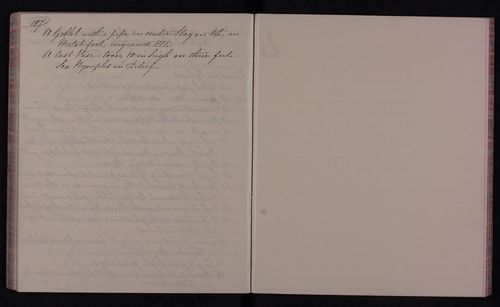 187
A Goblet with a pipe in centre Stag on top on
Metal foot, engraved
A cast Vase - Cover 10 in high on three feet.
Sea Nymphs in relief.